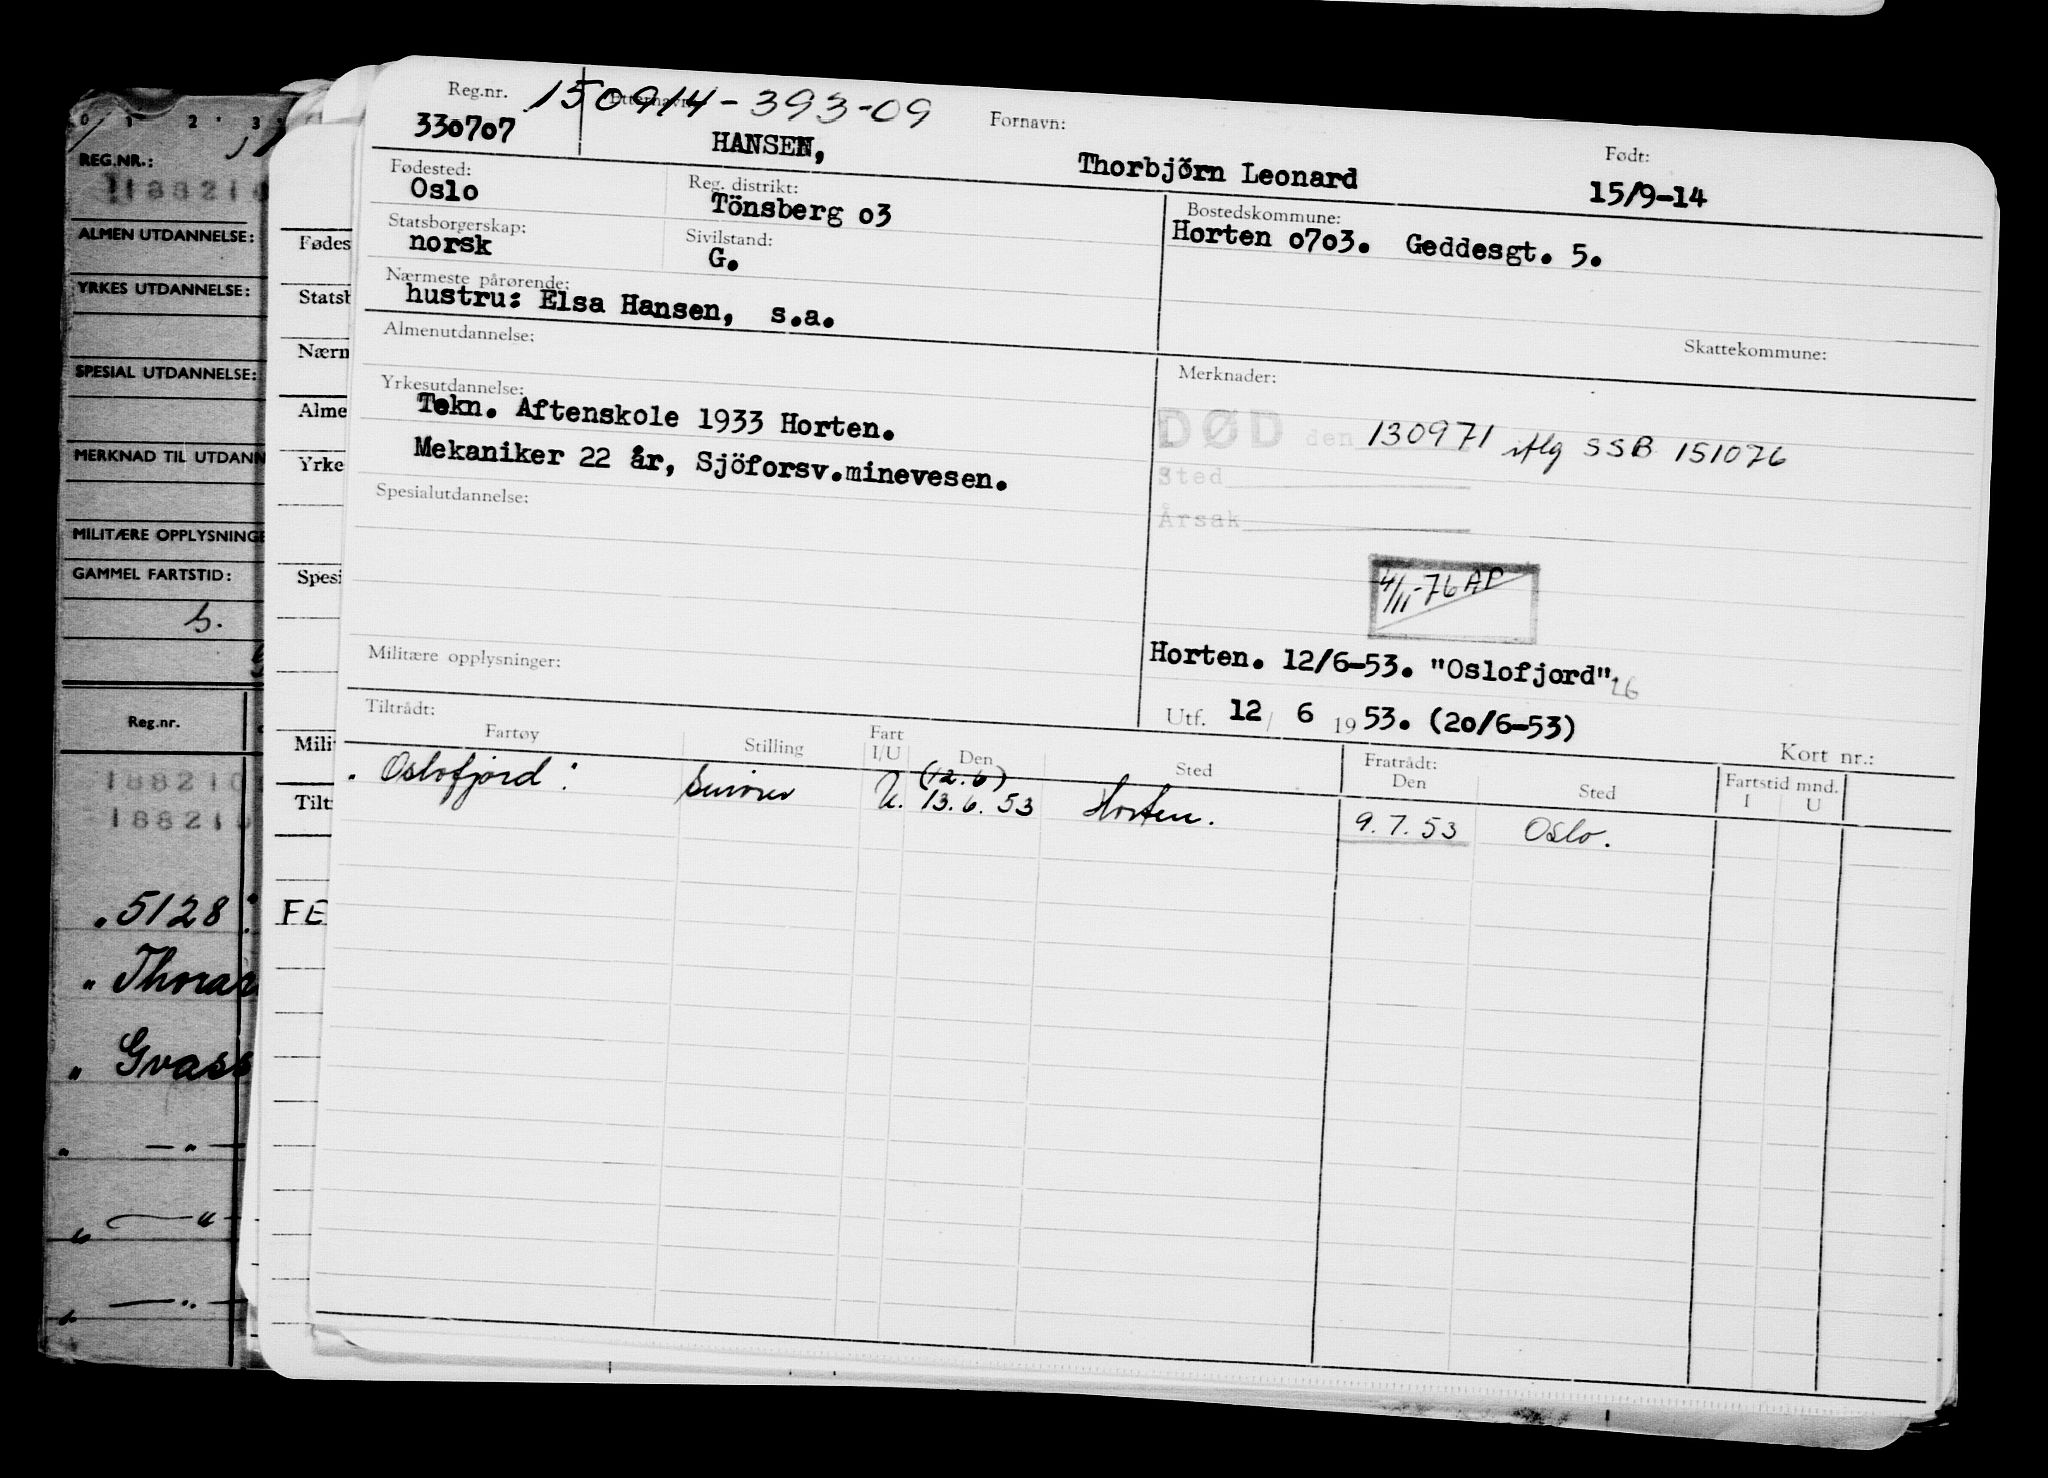 Reg.nr. 150914-393-09
330707
Etternavn:
HANSEN,
Fornavn:
Thorbjörn Leonard
Født:
15/9-14
Fødested:
Oslo
Reg. distrikt:
Tönsberg o3
Bostedskommune:
Horten o7o3. Geddesgt. 5.
Statsborgerskap:
norsk
Sivilstand:
G.
Nærmeste pårørende:
hustru: Elsa Hansen, s.a.
Skattekommune:
Almenutdannelse:
Merknader:
Yrkesutdannelse:
Tekn. Aftenskole 1933 Horten.
Mekaniker 22 år, Sjöforsv.minevesen.
DØD den 130971 iflg SSB 151076
Sted
Årsak
Spesialutdannelse:
4/11-76 AP
Militære opplysninger:
Horten. 12/6-53. "Oslofjord" 26
Utf. 12/ 6 1953. (2o/6-53)
Kort nr.:
Tiltrådt:
Fartøy Stilling Fart I/U Den Sted
Fratrådt: Den Sted Fartstid mnd. I U
(12.6)
. Oslofjord : U. 13.6.53 Horten. 9.7.53 Oslo.
0 1 2 3
REG.NR.:
188210
ALMEN UTDANNELSE:
YRKES UTDANNELSE:
SPESIAL UTDANNELSE:
MERKNAD TIL UTDANN
MILITÆRE OPPLYSNINGE
GAMMEL FARTSTID:
Reg.nr.
188210
188210
. 5128 :
" Thoras
" Gvass
" — " —
" — " —
" — " —
Fødes
Statsb
Nærn
Alme
Yrke
Spesi
Mili
Tilt
FE